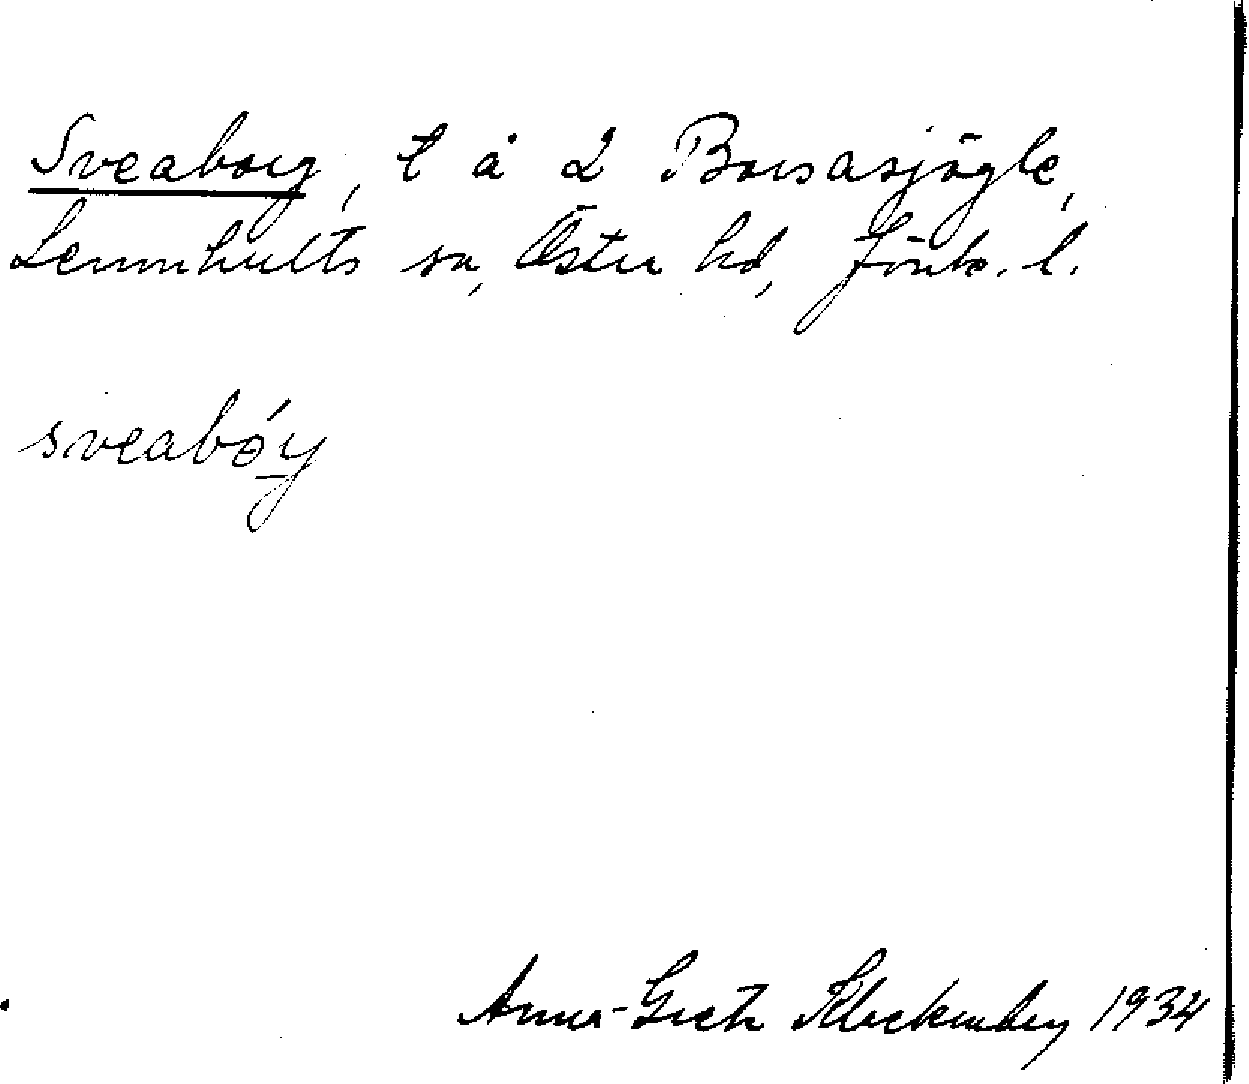 Sveaborg, l å 2 Borsasjögle,
Lemnhults sn, Östra hd, Jönk. l.
sveabóy
Anna-Greta Klockenberg 1934